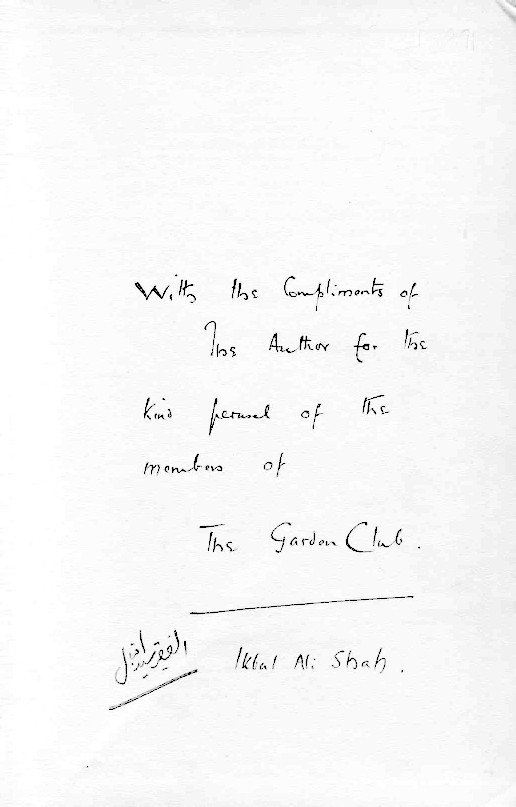 With the Compliments of
The Author for the
kind perusal of the
members of
The Garden Club.
الفقير سيد اقبال
Ikbal Ali Shah.